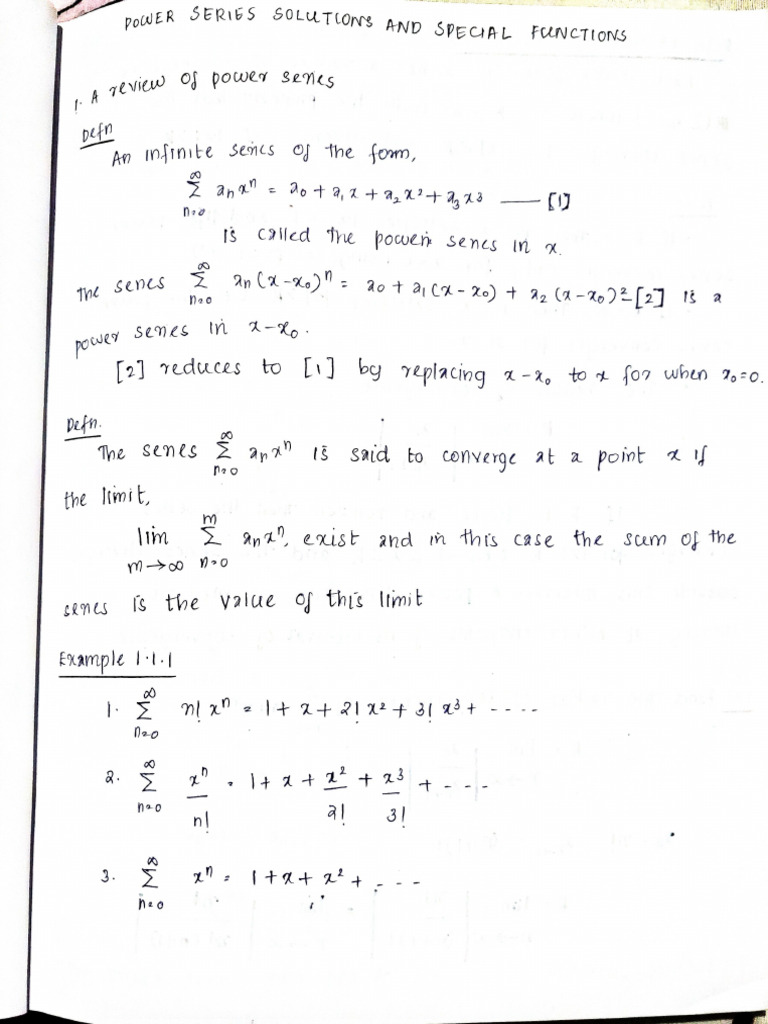 POWER SERIES SOLUTIONS AND SPECIAL FUNCTIONS
1. A review of power series
Defn
An infinite series of the form,
∞
Σ aₙxⁿ = a₀ + a₁x + a₂x² + a₃x³ —— [1]
n=0
is called the power series in x.
The series ∞Σn=0 aₙ(x-x₀)ⁿ = a₀ + a₁(x-x₀) + a₂(x-x₀)² — [2] is a
power series in x-x₀.
[2] reduces to [1] by replacing x-x₀ to x for when x₀=0.
Defn.
The series ∞Σn=0 aₙxⁿ is said to converge at a point x if
the limit,
lim m→∞ mΣn=0 aₙxⁿ, exist and in this case the sum of the
series is the value of this limit
Example 1.1.1
1. ∞Σn=0 n! xⁿ = 1 + x + 2! x² + 3! x³ + ----
2. ∞Σn=0 xⁿ/n! = 1 + x + x²/2! + x³/3! + ---
3. ∞Σn=0 xⁿ = 1 + x + x² + ----